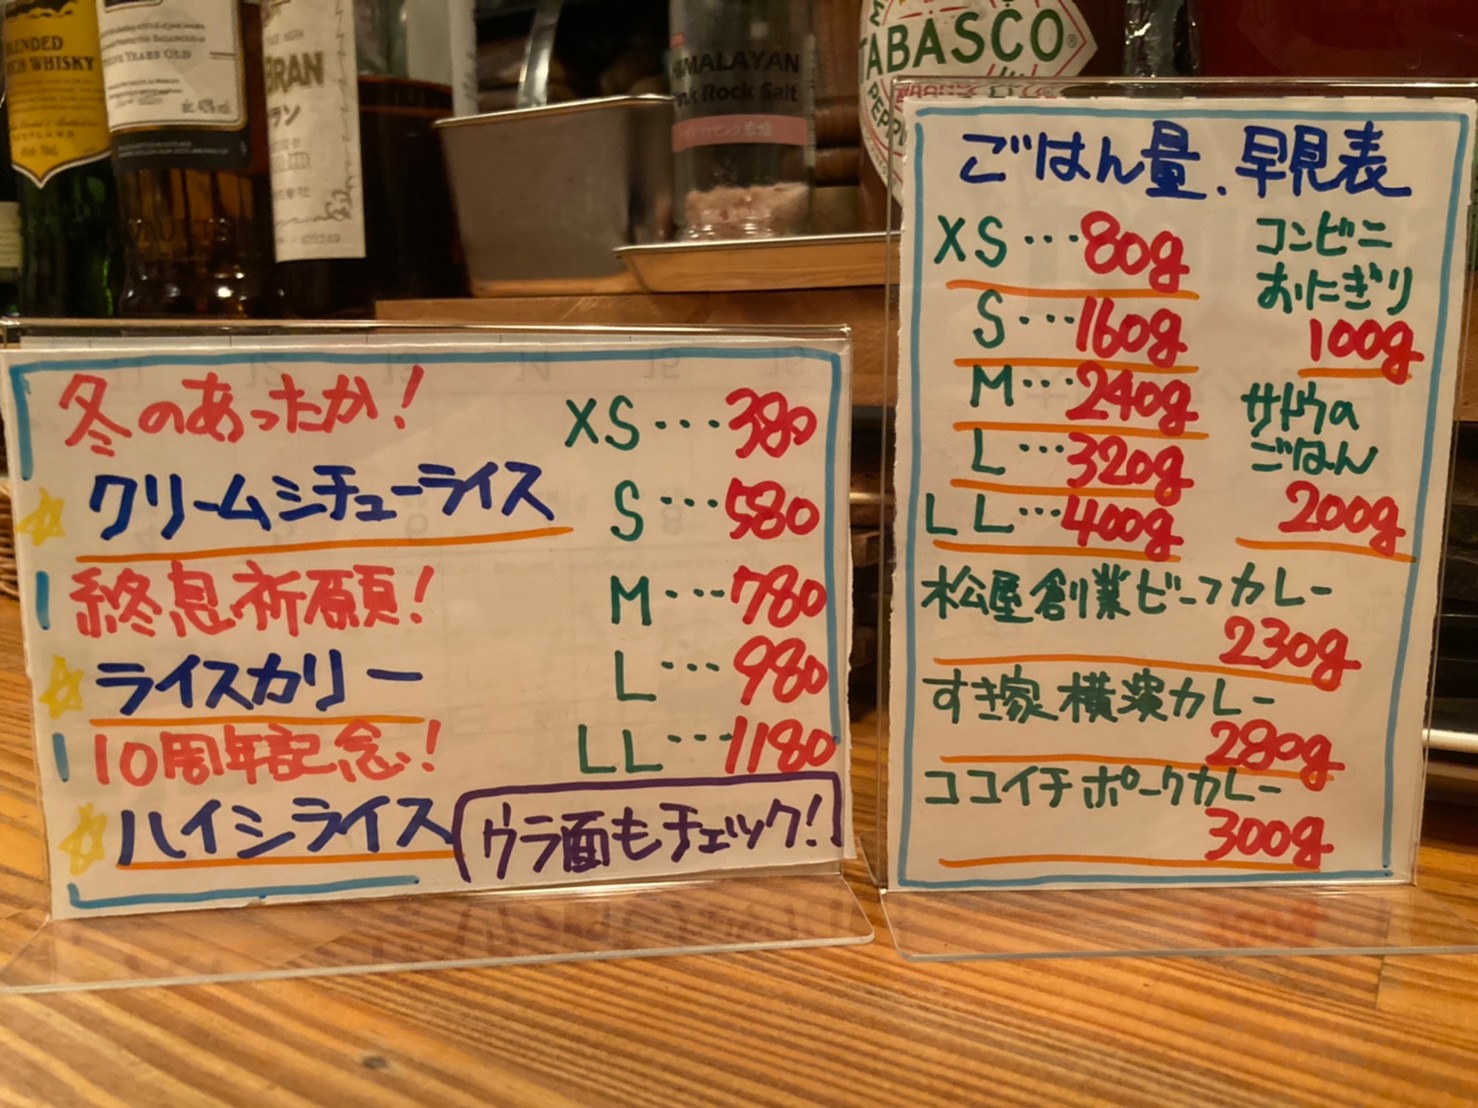 BLENDED
SCOTCH WHISKY
YEARS OLD
alc. 40% vol.
HIMALAYAN
Pink Rock Salt
TABASCO
冬のあったか!
クリームシチューライス
終息祈願!
ライスカリー
10周年記念!
ハイシライス
XS…380
S…580
M…780
L…980
LL…1180
ウラ面もチェック!
ごはん量.早見表
XS…80g
S…160g
M…240g
L…320g
LL…400g
コンビニ
おにぎり
100g
サトウの
ごはん
200g
松屋創業ビーフカレー
230g
すき家横濱カレー
280g
ココイチポークカレー
300g